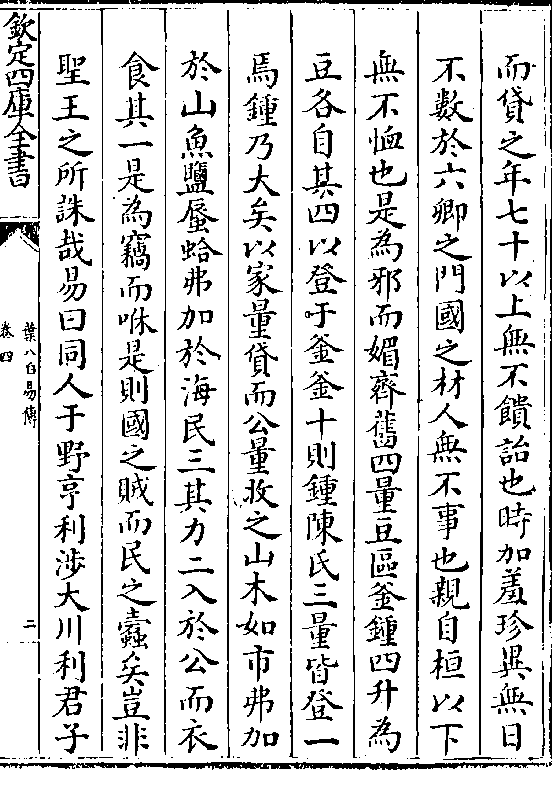 而貸之年七十以上無不饋詒也時加羞珍異無日
不數於六卿之門國之材人無不事也親自桓以下
無不恤也是為邪而媚齊舊四量豆區釜鍾四升為
豆各自其四以登于釜釜十則鍾陳氏三量皆登一
焉鍾乃大矣以家量貸而公量收之山木如市弗加
於山魚鹽蜃蛤弗加於海民三其力二入於公而衣
食其一是為竊而咻是則國之賊而民之蠹矣豈非
聖王之所誅哉易曰同人于野亨利涉大川利君子
欽定四庫全書
葉八白易傳
卷四
二